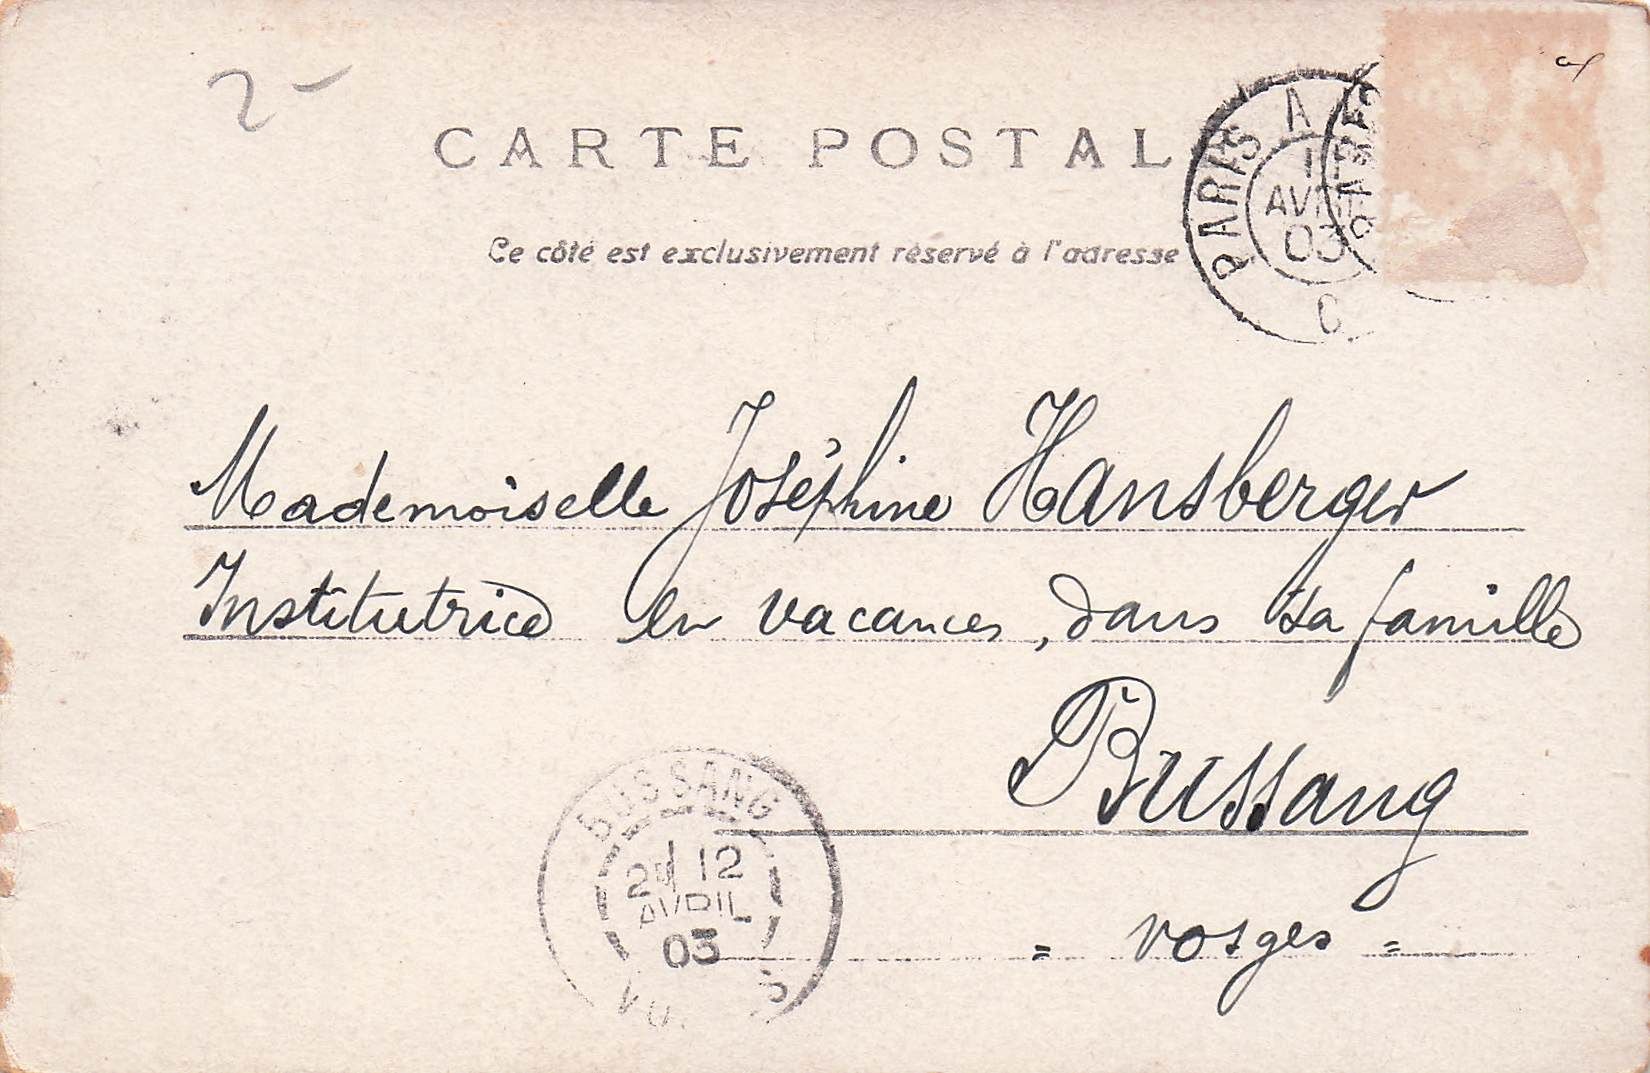 2-
CARTE POSTAL
Ce côté est exclusivement réservé à l'adresse
PARIS A
AVRIL
03
Mademoiselle Joséphine Hansberger
Institutrice en vacances, dans sa famille
Bussang
= Vosges =
BUSSANG
12
AVRIL
03